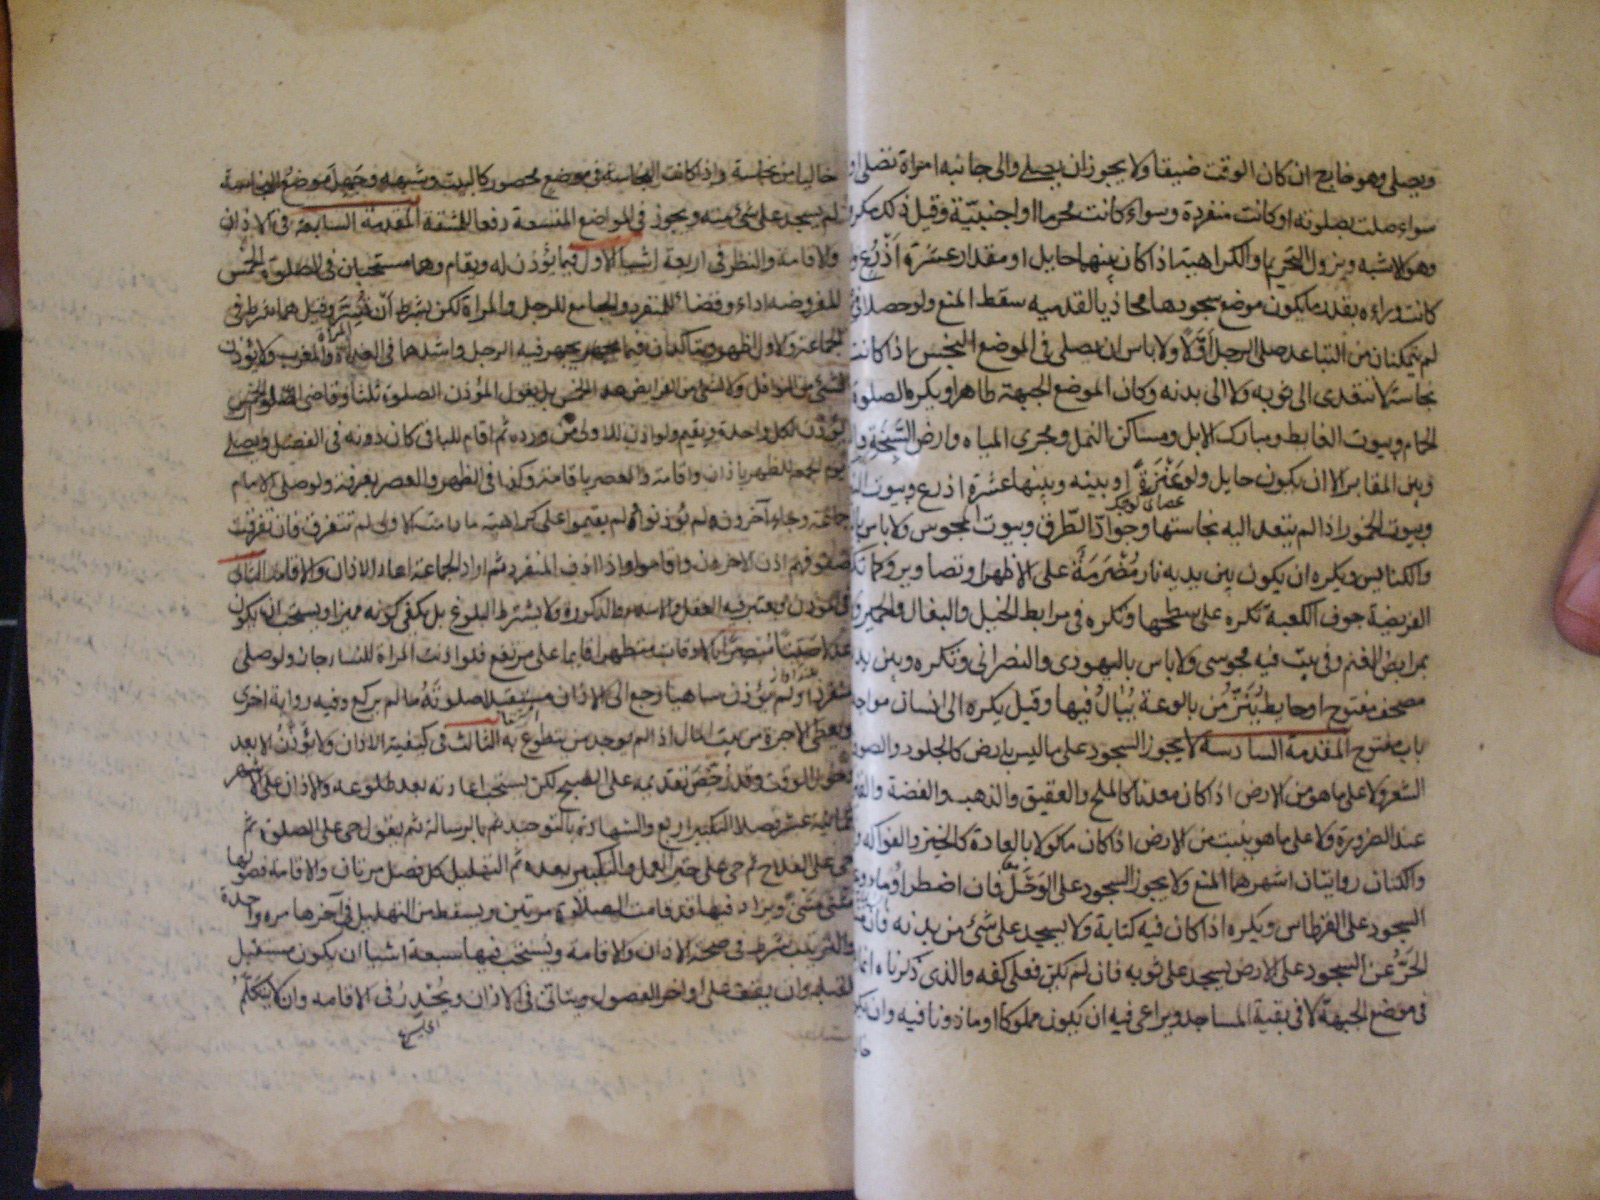 ويصلى وهو خارج ان كان الوقت ضيقا ولا يجوز ان يصلى والى جانبه امراة تصلى
سواء صلت بصلوته او كانت منفردة وسواء كانت محرما او اجنبيّة وقيل ذلك مكروه
وهو الاشبه ويزول التحريم او الكراهية اذا كان بينهما حايل او مقدار عشرة اذرع
كانت وراءه بقدر ما يكون موضع سجودها محاذيا لقدميه سقط المنع ولو حصلا فى
لم يتمكنان من التباعد صلى الرجل اوّلا ولا باس ان يصلى فى الموضع النجس اذا كانت
نجاسته لا تتعدى الى ثوبه ولا الى بدنه وكان الموضع الجبهة طاهرا ويكره الصلوة
الحمام وبيوت الغايط ومبارك الابل ومساكن النمل ومجرى المياه وارض السّبخة
وبين المقابر الا ان يكون حايل ولو عنزة او بينه وبينها عشرة اذرع وبيوت
وبيوت الخمور اذا لم يتعد اليه نجاستها وجوادّ الطرق وبيوت المجوس ولا باس
والكنايس ويكره ان يكون بين يديه نار مضرمة على الاظهر او تصاوير وكما تكره
الفريضة جوف الكعبة تكره على سطحها وتكره فى مرابط الخيل والبغال والحمير
بمرابض الغنم وفى بيت فيه مجوسى ولا باس باليهودى والنصرانى وتكره وبين يديه
مصحف مفتوح او حايط ينزّ من بالوعة يبال فيها وقيل يكره الى انسان مواجه
باب مفتوح المقدمة السادسة لا يجوز السجود على ما ليس بارض كالجلود والصوف
الشعر ولا على ما هو من الارض اذا كان معدنا كالملح والعقيق والذهب والفضة
عند الضرورة ولا على ما هو ينبت من الارض اذا كان ماكولا بالعادة كالخبز والفواكه
والكتان روايتان اشهرهما المنع ولا يجوز السجود على الوحل فان اضطر اوما
السجود على القرطاس ويكره اذا كان فيه كتابة ولا يسجد على شئ من بدنه فان
الحرّ عن السجود على الارض يسجد على ثوبه فان لم يكن فعلى كفه والذى ذكرناه انما
فى موضع الجبهة لا فى بقية المساجد ويراعى فيه ان يكون مملوكا او ماذونا فيه وان يكون
خاليا من نجاسة واذا كانت النجاسة فى موضع محصور كالبيت وشبهه وجهل موضع النجاسة
لم يسجد على شئ منه ويجوز فى المواضع المتسعة دفعا للمشقة المقدمة السابعة فى الاذان
والاقامة والنظر فى اربعة اشيا الاول فيما يؤذن له ويقام وهما مستحبان فى الصلوة الخمس
المفروضه اداء وقضاء للمنفرد والجامع للرجل والمراة لكن بشرط ان تسرّ وقيل هما شرط فى
الجماعة والاول اظهر ويتاكدان فيما يجهر فيه الرجل واشدهما فى الغداة والمغرب ولا يؤذن
لشئ من النوافل ولا لشئ من الفرايض عدا الخمس بل يقول المؤذن الصلوة ثلثا وقاضى الصلوة الخمس
يؤذن لكل واحدة ويقيم ولو اذن للاولى من ورده ثم اقام للباقى كان دونه فى الفضل ويصلى
يوم الجمعة الظهر باذان واقامة والعصر باقامة وكذا فى الظهر والعصر بعرفة ولو صلى الامام
جماعة وجاء آخرون لم يؤذنوا ولم يقيموا على كراهية ما دامت الاولى لم تتفرق فان تفرقت
صفوفهم اذن الاخرون واقاموا واذا اذن المنفرد ثم اراد الجماعة اعاد الاذان والاقامة الثانى
فى المؤذن ويعتبر فيه العقل والاسلام والذكورة ولا يشترط البلوغ بل يكفى كونه مميزا ويستحب ان يكون
عدلا صيّتا مبصرا بالاوقات متطهرا قايما على مرتفع فلو اذنت المراة للنساء جاز ولو صلى
منفردا ولم يؤذن ساهيا رجع الى الاذان مستقبلا صلوته ما لم يركع وفيه رواية اخرى
ويعطى الاجرة من بيت المال اذا لم يوجد من يتطوع به الثالث فى كيفية الاذان ولا يؤذّن الا بعد
دخول الوقت وقد رخّص تقديمه على الصبح لكن يستحب اعادته بعد طلوعه والاذان على الاشهر
ثمانية عشر فصلا التكبير اربع والشهادة بالتوحيد ثم بالرسالة ثم يقول حى على الصلوة ثم
حى على الفلاح ثم حى على خير العمل والتكبير بعده ثم التهليل كل فصل مرتان والاقامة فصولها
مثنى مثنى ويزاد فيها قد قامت الصلاة مرتين ويسقط من التهليل فى آخرها مره واحدة
والترتيب شرط فى صحة الاذان والاقامة ويستحب فيها سبعة اشيا ان يكون مستقبل
القبلة وان يقف على اواخر الفصول ويتانى فى الاذان ويحدر فى الاقامه وان لا يتكلّم